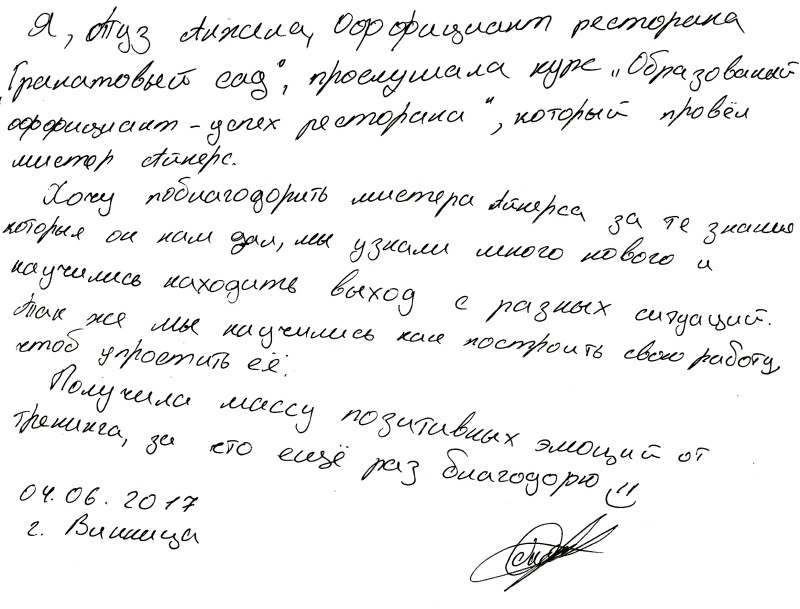 Я, Туз Анжела, Оффициант ресторана
"Гранатовый сад", прослушала курс „Образованый
оффициант – успех ресторана", который провёл
мистер Айперс.
Хочу поблагодорить мистера Айперса за те знания
которые он нам дал, мы узнали много нового и
научились находить выход с разных ситуаций.
Так же мы научились как построить свою работу,
чтоб упростить её.
Получила массу позитивных эмоций от
тренинга, за что ещё раз благодорю
04.06.2017
г. Винница